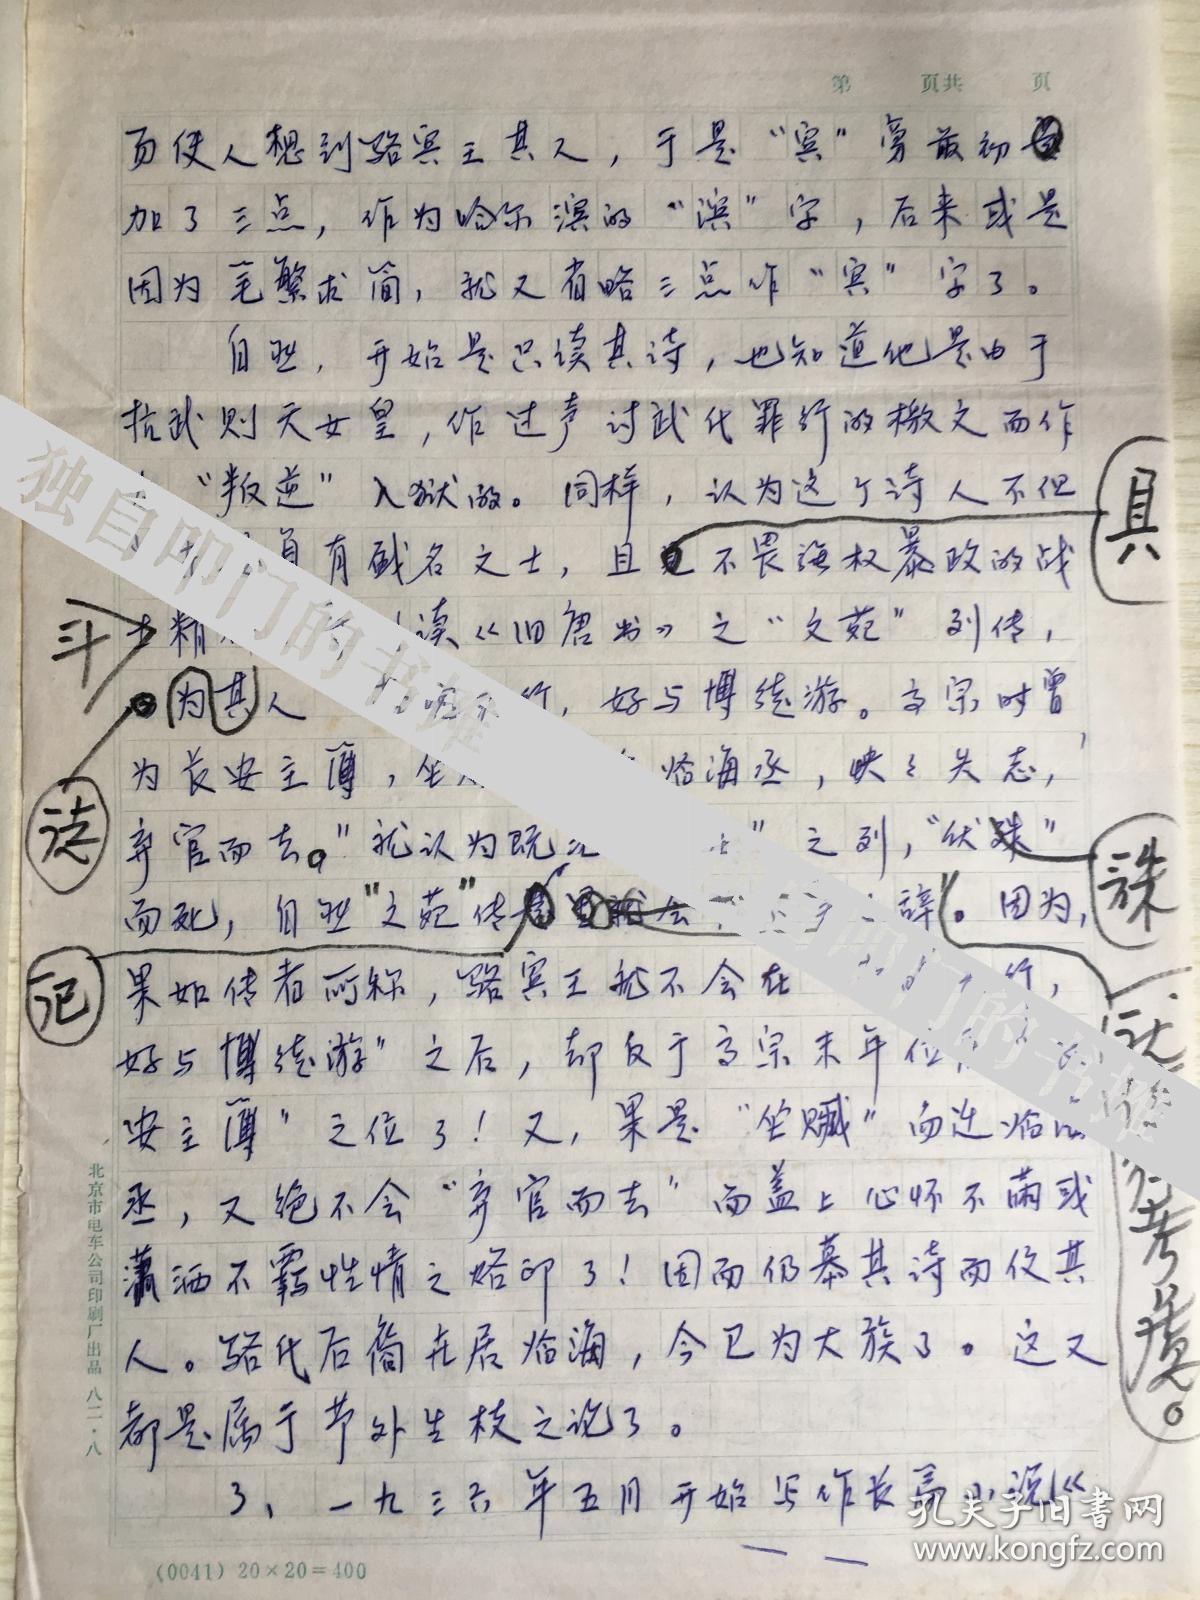 第 页共 页
而使人想到骆宾王其人，于是“宾”旁最初
加了三点，作为哈尔滨的“滨”字，后来或是
因为笔繁求简，就又省略三点作“宾”字了。
自然，开始是只读其诗，也知道他是由于
抗武则天女皇，作过声讨武氏罪行的檄文而作
“叛逆”入狱的。同样，认为这个诗人不但
具
有盛名文士，且不畏强权暴政的战
斗
精 读《旧唐书》之“文苑”列传，
为其人 行，好与博徒游。高宗时曾
为长安主薄，坐 临海丞，怏々失志，
读
弃官而去。”就认为既 之列，“伏殊”
诛
而死，自然“文苑”传 辞。因为，
记
果如传者所称，骆宾王就不会在 行，
好与博徒游”之后，却反于高宗末年位
安主薄”之位了！又，果是“坐赃”而迁临
丞，又绝不会“弃官而去”而盖上心怀不满或
潇洒不羁性情之烙印了！因而仍慕其诗而仪其
人。骆氏后裔在居临海，今已为大族了。这又
都是属于节外生枝之说了。
3、一九三六年五月开始写作长篇小说《
北京市电车公司印刷厂出品 八二·八
(0041) 20×20=400
独自叩门的书摊
独自叩门的书摊
孔夫子旧书网
www.kongfz.com